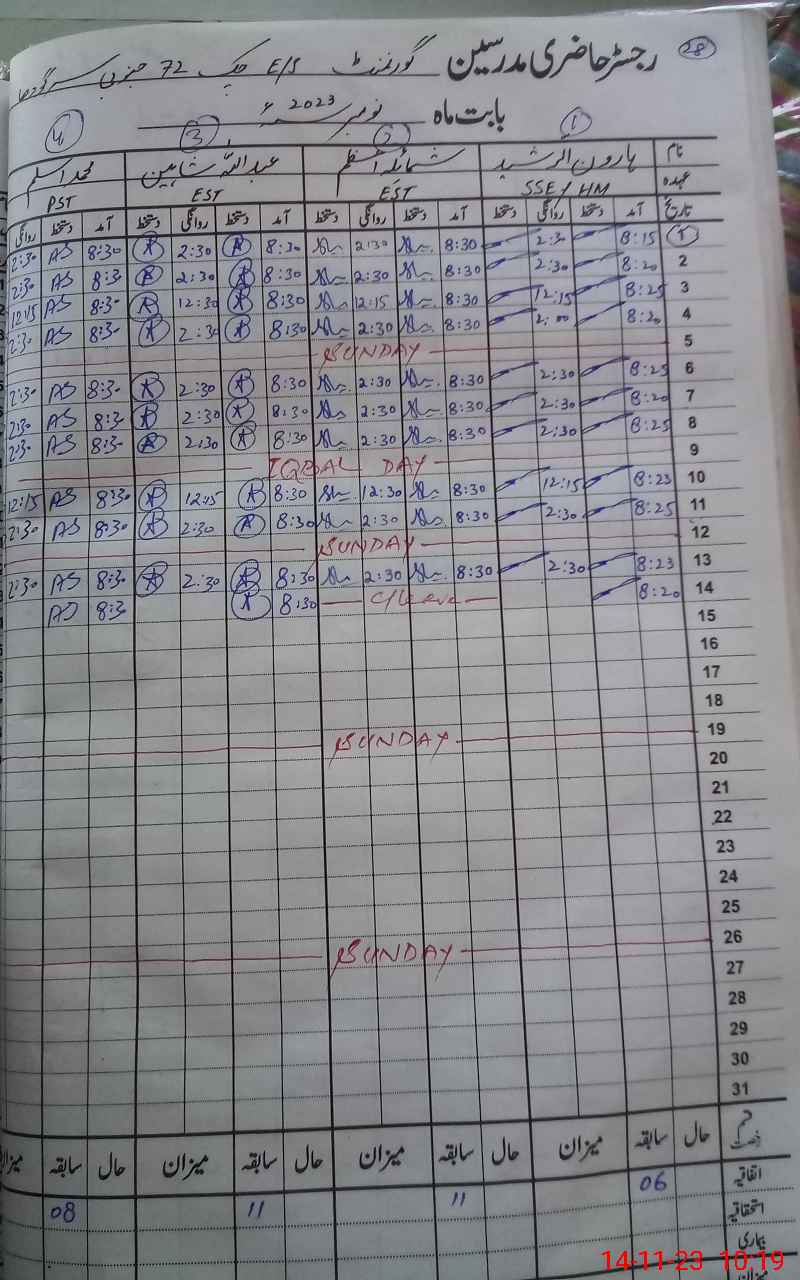 رجسٹر حاضری مدرسین گورنمنٹ E/S چک 72 جنوبی سرگودھا 28
بابت ماہ نومبر 2023ء
1 2 3 4
نام ہارون الرشید شمائلہ اعظم عبداللہ شاہین محمد اسلم
عہدہ SSE / HM EST EST PST
تاریخ آمد دستخط روانگی دستخط آمد دستخط روانگی دستخط آمد دستخط روانگی دستخط آمد دستخط روانگی
1 8:15 2:30 8:30 2:30 8:30 2:30 8:30 AS 2:30
2 8:20 2:30 8:30 2:30 8:30 2:30 8:30 AS 2:30
3 8:25 12:15 8:30 12:15 8:30 12:30 8:30 AS 12:15
4 8:20 2:00 8:30 2:30 8:30 2:30 8:30 AS 2:30
5 SUNDAY
6 8:25 2:30 8:30 2:30 8:30 2:30 8:30 AS 2:30
7 8:20 2:30 8:30 2:30 8:30 2:30 8:30 AS 2:30
8 8:25 2:30 8:30 2:30 8:30 2:30 8:30 AS 2:30
9 IQBAL DAY
10 8:23 12:15 8:30 12:30 8:30 12:15 8:30 AS 12:15
11 8:25 2:30 8:30 2:30 8:30 2:30 8:30 AS 2:30
12 SUNDAY
13 8:23 2:30 8:30 2:30 8:30 2:30 8:30 AS 2:30
14 8:20 C/Leave 8:30 8:30 AS
15
16
17
18
19 SUNDAY
20
21
22
23
24
25
26 SUNDAY
27
28
29
30
31
رخصت حال سابقہ میزان حال سابقہ میزان حال سابقہ میزان حال سابقہ میزان
اتفاقیہ 06 11 11 08
استحقاقیہ
بیماری
میزان
14-11-23 10:19